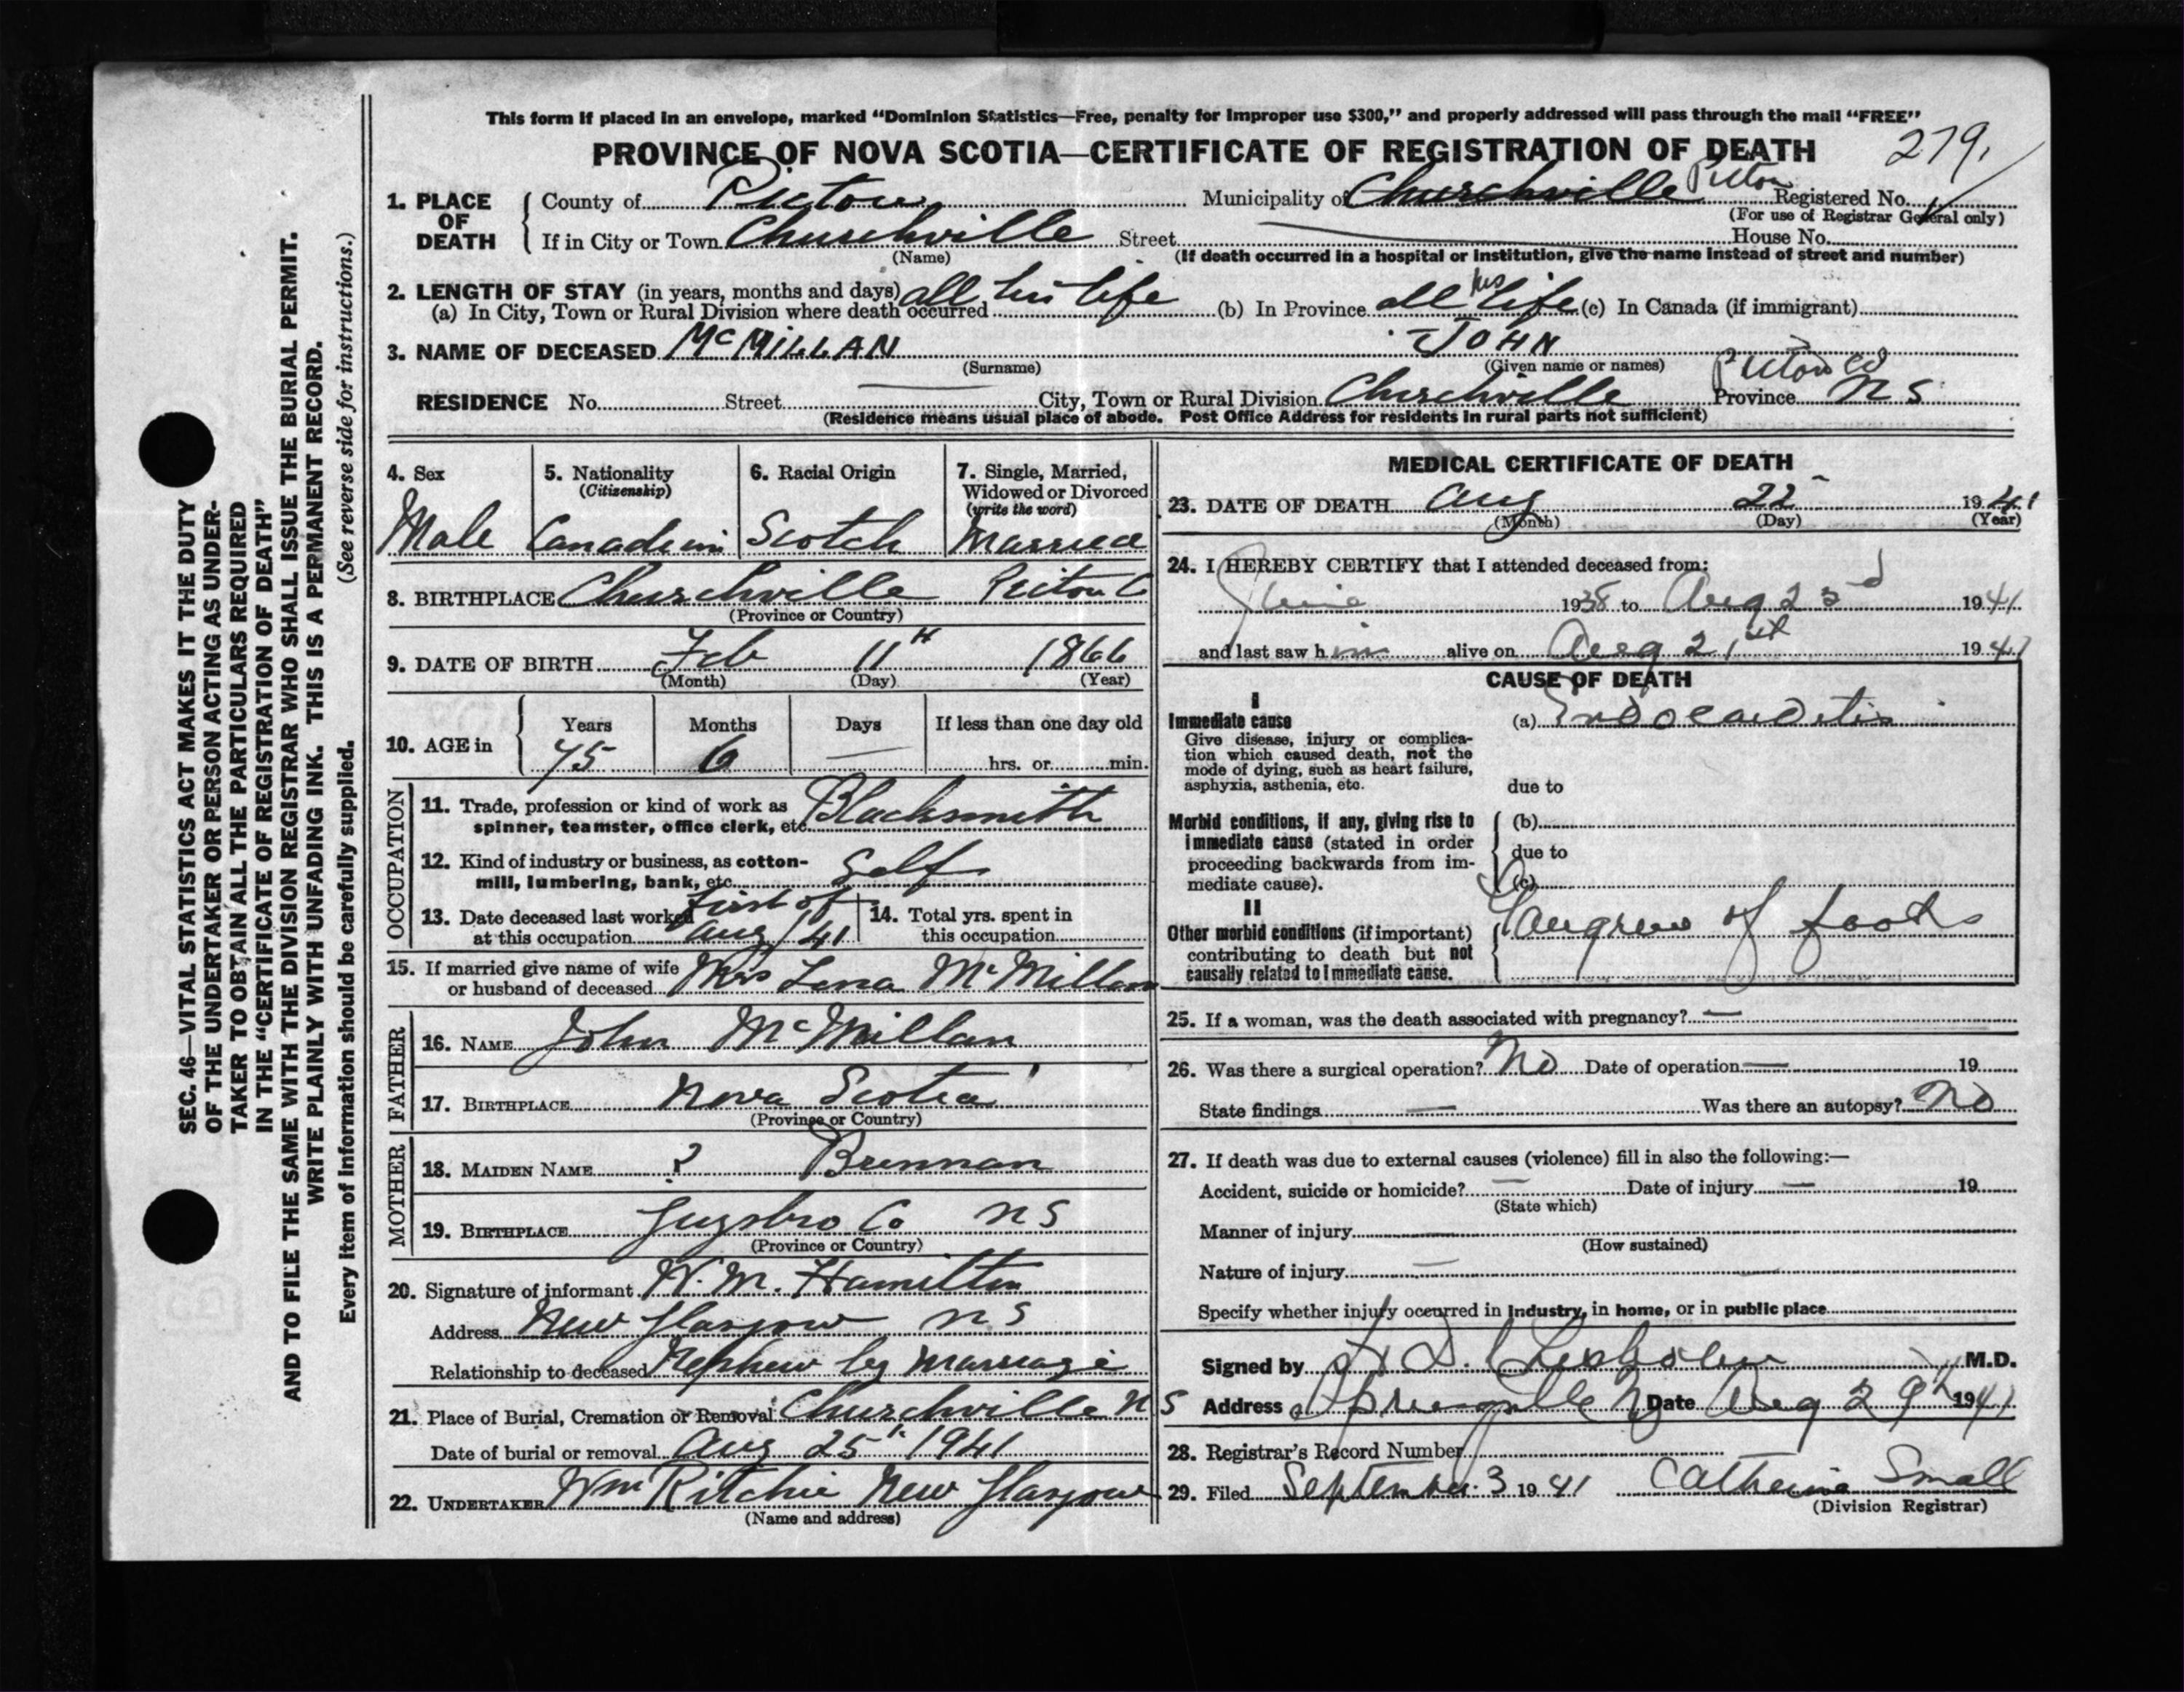 This form if placed in an envelope, marked "Dominion Statistics—Free, penalty for improper use $300," and properly addressed will pass through the mail "FREE"
PROVINCE OF NOVA SCOTIA—CERTIFICATE OF REGISTRATION OF DEATH 279.
1. PLACE OF DEATH County of Pictou Municipality of Churchville Pictou Registered No.
(For use of Registrar General only)
If in City or Town Churchville Street House No.
(Name) (If death occurred in a hospital or institution, give the name instead of street and number)
2. LENGTH OF STAY (in years, months and days)
(a) In City, Town or Rural Division where death occurred all his life (b) In Province all his life (c) In Canada (if immigrant)
3. NAME OF DECEASED McMILLAN JOHN
(Surname) (Given name or names)
RESIDENCE No. Street City, Town or Rural Division Churchville Pictou Co Province N S
(Residence means usual place of abode. Post Office Address for residents in rural parts not sufficient)
SEC. 46—VITAL STATISTICS ACT MAKES IT THE DUTY
OF THE UNDERTAKER OR PERSON ACTING AS UNDER-
TAKER TO OBTAIN ALL THE PARTICULARS REQUIRED
IN THE "CERTIFICATE OF REGISTRATION OF DEATH"
AND TO FILE THE SAME WITH THE DIVISION REGISTRAR WHO SHALL ISSUE THE BURIAL PERMIT.
WRITE PLAINLY WITH UNFADING INK. THIS IS A PERMANENT RECORD.
Every item of information should be carefully supplied. (See reverse side for instructions.)
4. Sex 5. Nationality (Citizenship) 6. Racial Origin 7. Single, Married, Widowed or Divorced (write the word)
Male Canadian Scotch Married
8. BIRTHPLACE Churchville Pictou C
(Province or Country)
9. DATE OF BIRTH Feb 11th 1866
(Month) (Day) (Year)
10. AGE in Years Months Days If less than one day old
75 6 — hrs. or min.
OCCUPATION
11. Trade, profession or kind of work as spinner, teamster, office clerk, etc. Blacksmith
12. Kind of industry or business, as cotton-mill, lumbering, bank, etc. Self
13. Date deceased last worked at this occupation First of Aug/41 14. Total yrs. spent in this occupation
15. If married give name of wife or husband of deceased Mrs Lena McMillan
FATHER
16. NAME John McMillan
17. BIRTHPLACE Nova Scotia
(Province or Country)
MOTHER
18. MAIDEN NAME ? Brennan
19. BIRTHPLACE Guysbro Co N S
(Province or Country)
20. Signature of informant W. M. Hamilton
Address New Glasgow N S
Relationship to deceased Nephew by marriage
21. Place of Burial, Cremation or Removal Churchville N S
Date of burial or removal Aug 25th 1941
22. UNDERTAKER Wm Ritchie New Glasgow
(Name and address)
MEDICAL CERTIFICATE OF DEATH
23. DATE OF DEATH Aug 22 1941
(Month) (Day) (Year)
24. I HEREBY CERTIFY that I attended deceased from:
June 1938 to Aug 23d 1941
and last saw him alive on Aug 21st 1941
CAUSE OF DEATH
I
Immediate cause (a) Endocarditis
Give disease, injury or complica-
tion which caused death, not the
mode of dying, such as heart failure,
asphyxia, asthenia, etc. due to
Morbid conditions, if any, giving rise to (b)
immediate cause (stated in order due to
proceeding backwards from im-
mediate cause). (c)
II
Other morbid conditions (if important) Gangrene of foot
contributing to death but not
causally related to immediate cause.
25. If a woman, was the death associated with pregnancy? —
26. Was there a surgical operation? No Date of operation — 19
State findings — Was there an autopsy? No
27. If death was due to external causes (violence) fill in also the following:—
Accident, suicide or homicide? — Date of injury — 19
(State which)
Manner of injury
(How sustained)
Nature of injury —
Specify whether injury occurred in industry, in home, or in public place
Signed by M.D.
Address Springville N Date Aug 29th 1941
28. Registrar's Record Number
29. Filed September 3 1941 Catherine Small
(Division Registrar)